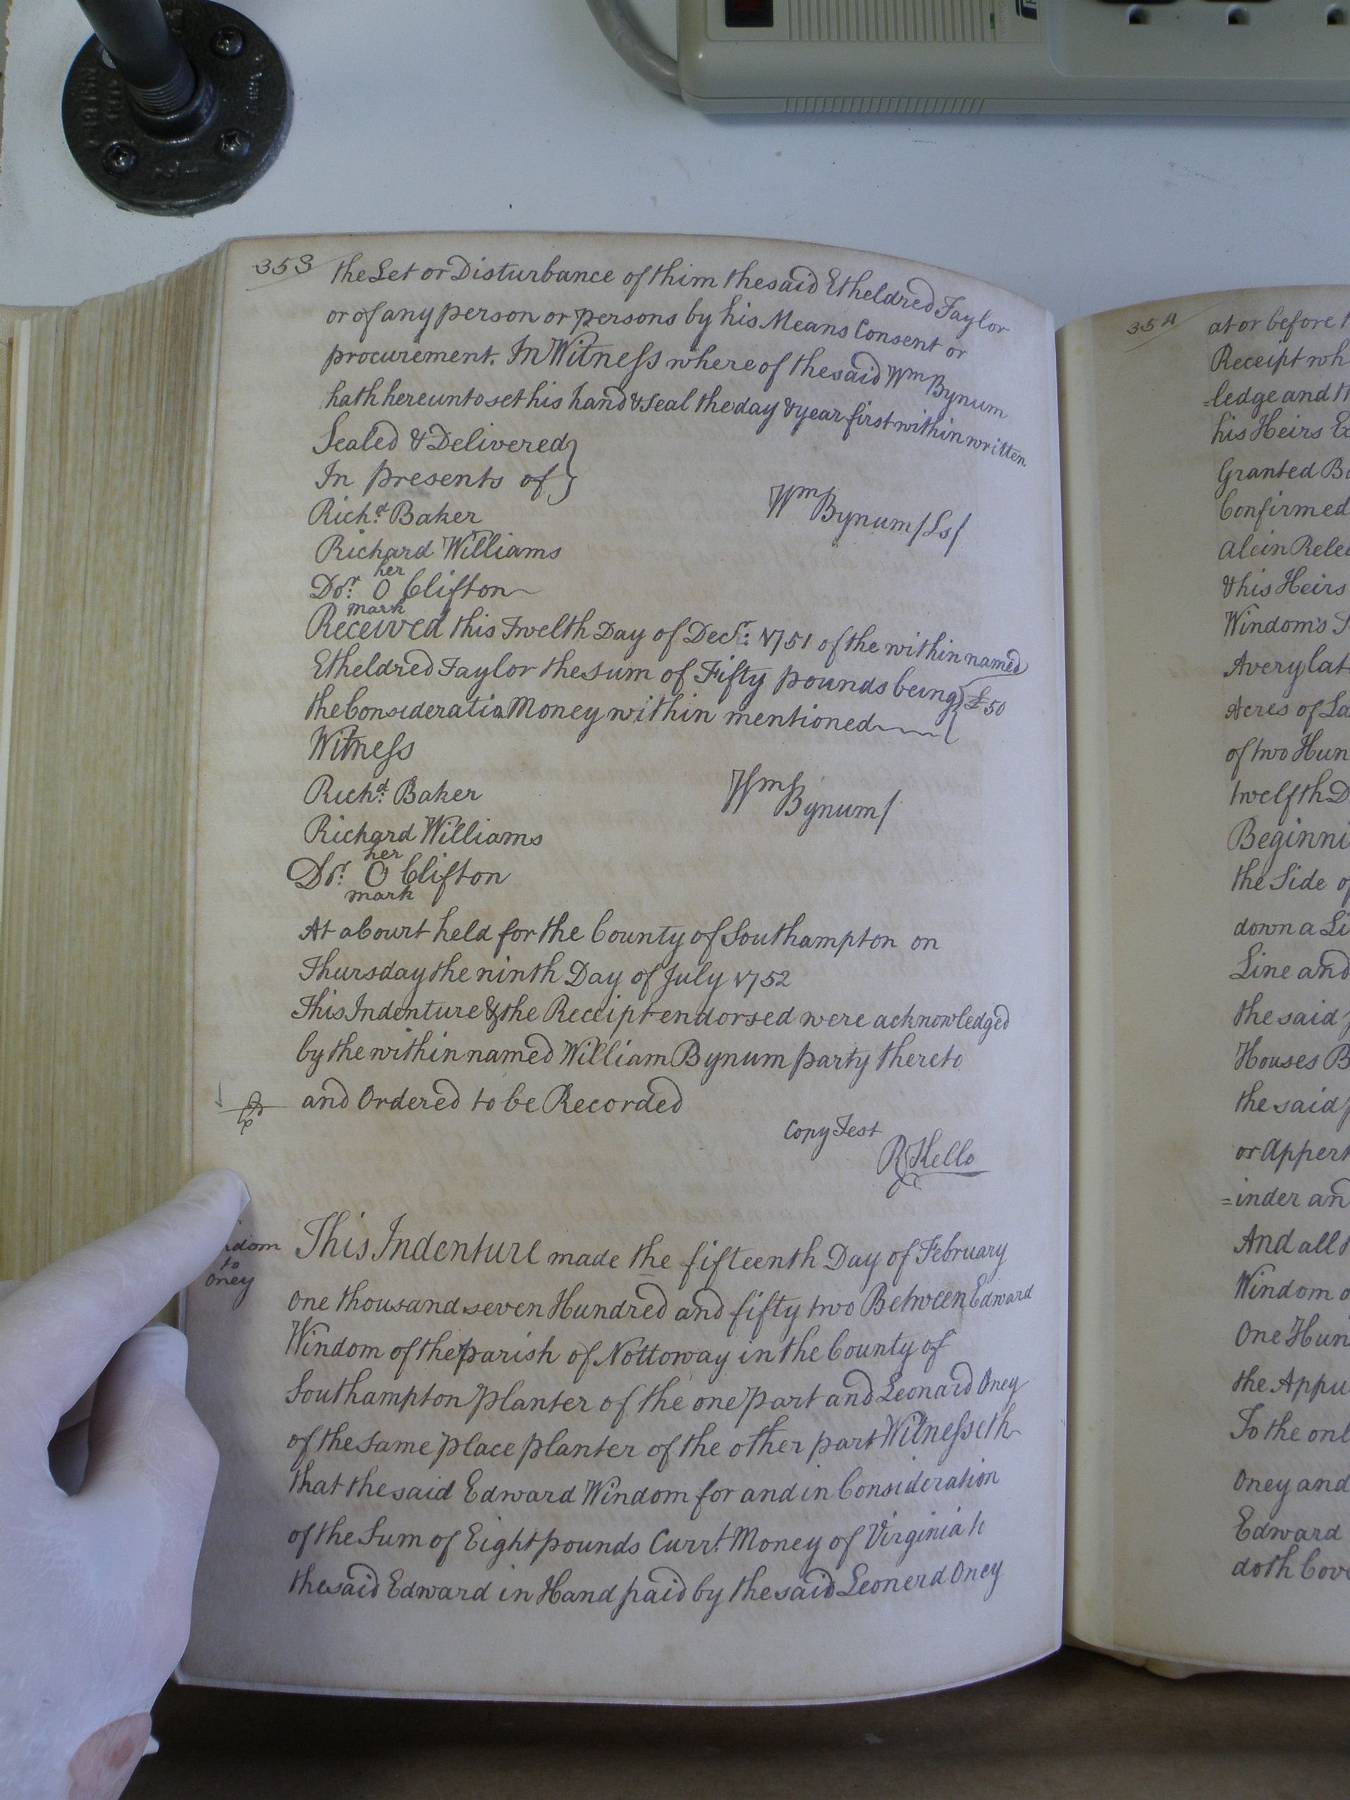 353
the Let or Disturbance of thim the said Etheldred Taylor
or of any person or persons by his Means Consent or
procurement. In Witness where of the said Wm Bynum
hath hereunto set his hand & Seal the day & year first within written
Sealed & Delivered
In presents of
Richd. Baker
Wm Bynum/Ls/
Richard Williams
her
Dor. O Clifton
mark
Received this Twelth Day of Decr: 1751 of the within named
Etheldred Taylor the sum of Fifty pounds being £50
the Consideratia Money within mentioned
Witness
Richd. Baker
Wm Bynum/
Richard Williams
her
Dor. O Clifton
mark
At a Court held for the County of Southampton on
Thursday the ninth Day of July 1752
This Indenture & the Receipt endorsed were acknowledged
by the within named William Bynum party thereto
and Ordered to be Recorded
Copy Test
R Kello
dom
to
Oney
This Indenture made the fifteenth Day of February
one thousand seven Hundred and fifty two Between Edward
Windom of the parish of Nottoway in the County of
Southampton planter of the one part and Leonard Oney
of the same place planter of the other part Witnesseth
that the said Edward Windom for and in Consideration
of the Sum of Eight pounds Currt. Money of Virginia to
the said Edward in Hand paid by the said Leonerd Oney
354
at or before
Receipt wh
=ledge and th
his Heirs
Granted
Confirmed
alein Rele
& his Heirs
Windom's
Avery lat
Acres of La
of two Hun
twelfth D
Beginni
the Side of
down a Li
Line and
the said
Houses B
the said
or Appert
=inder an
And all
Windom
One Hun
the Appu
To the onl
Oney and
Edward
doth Cov